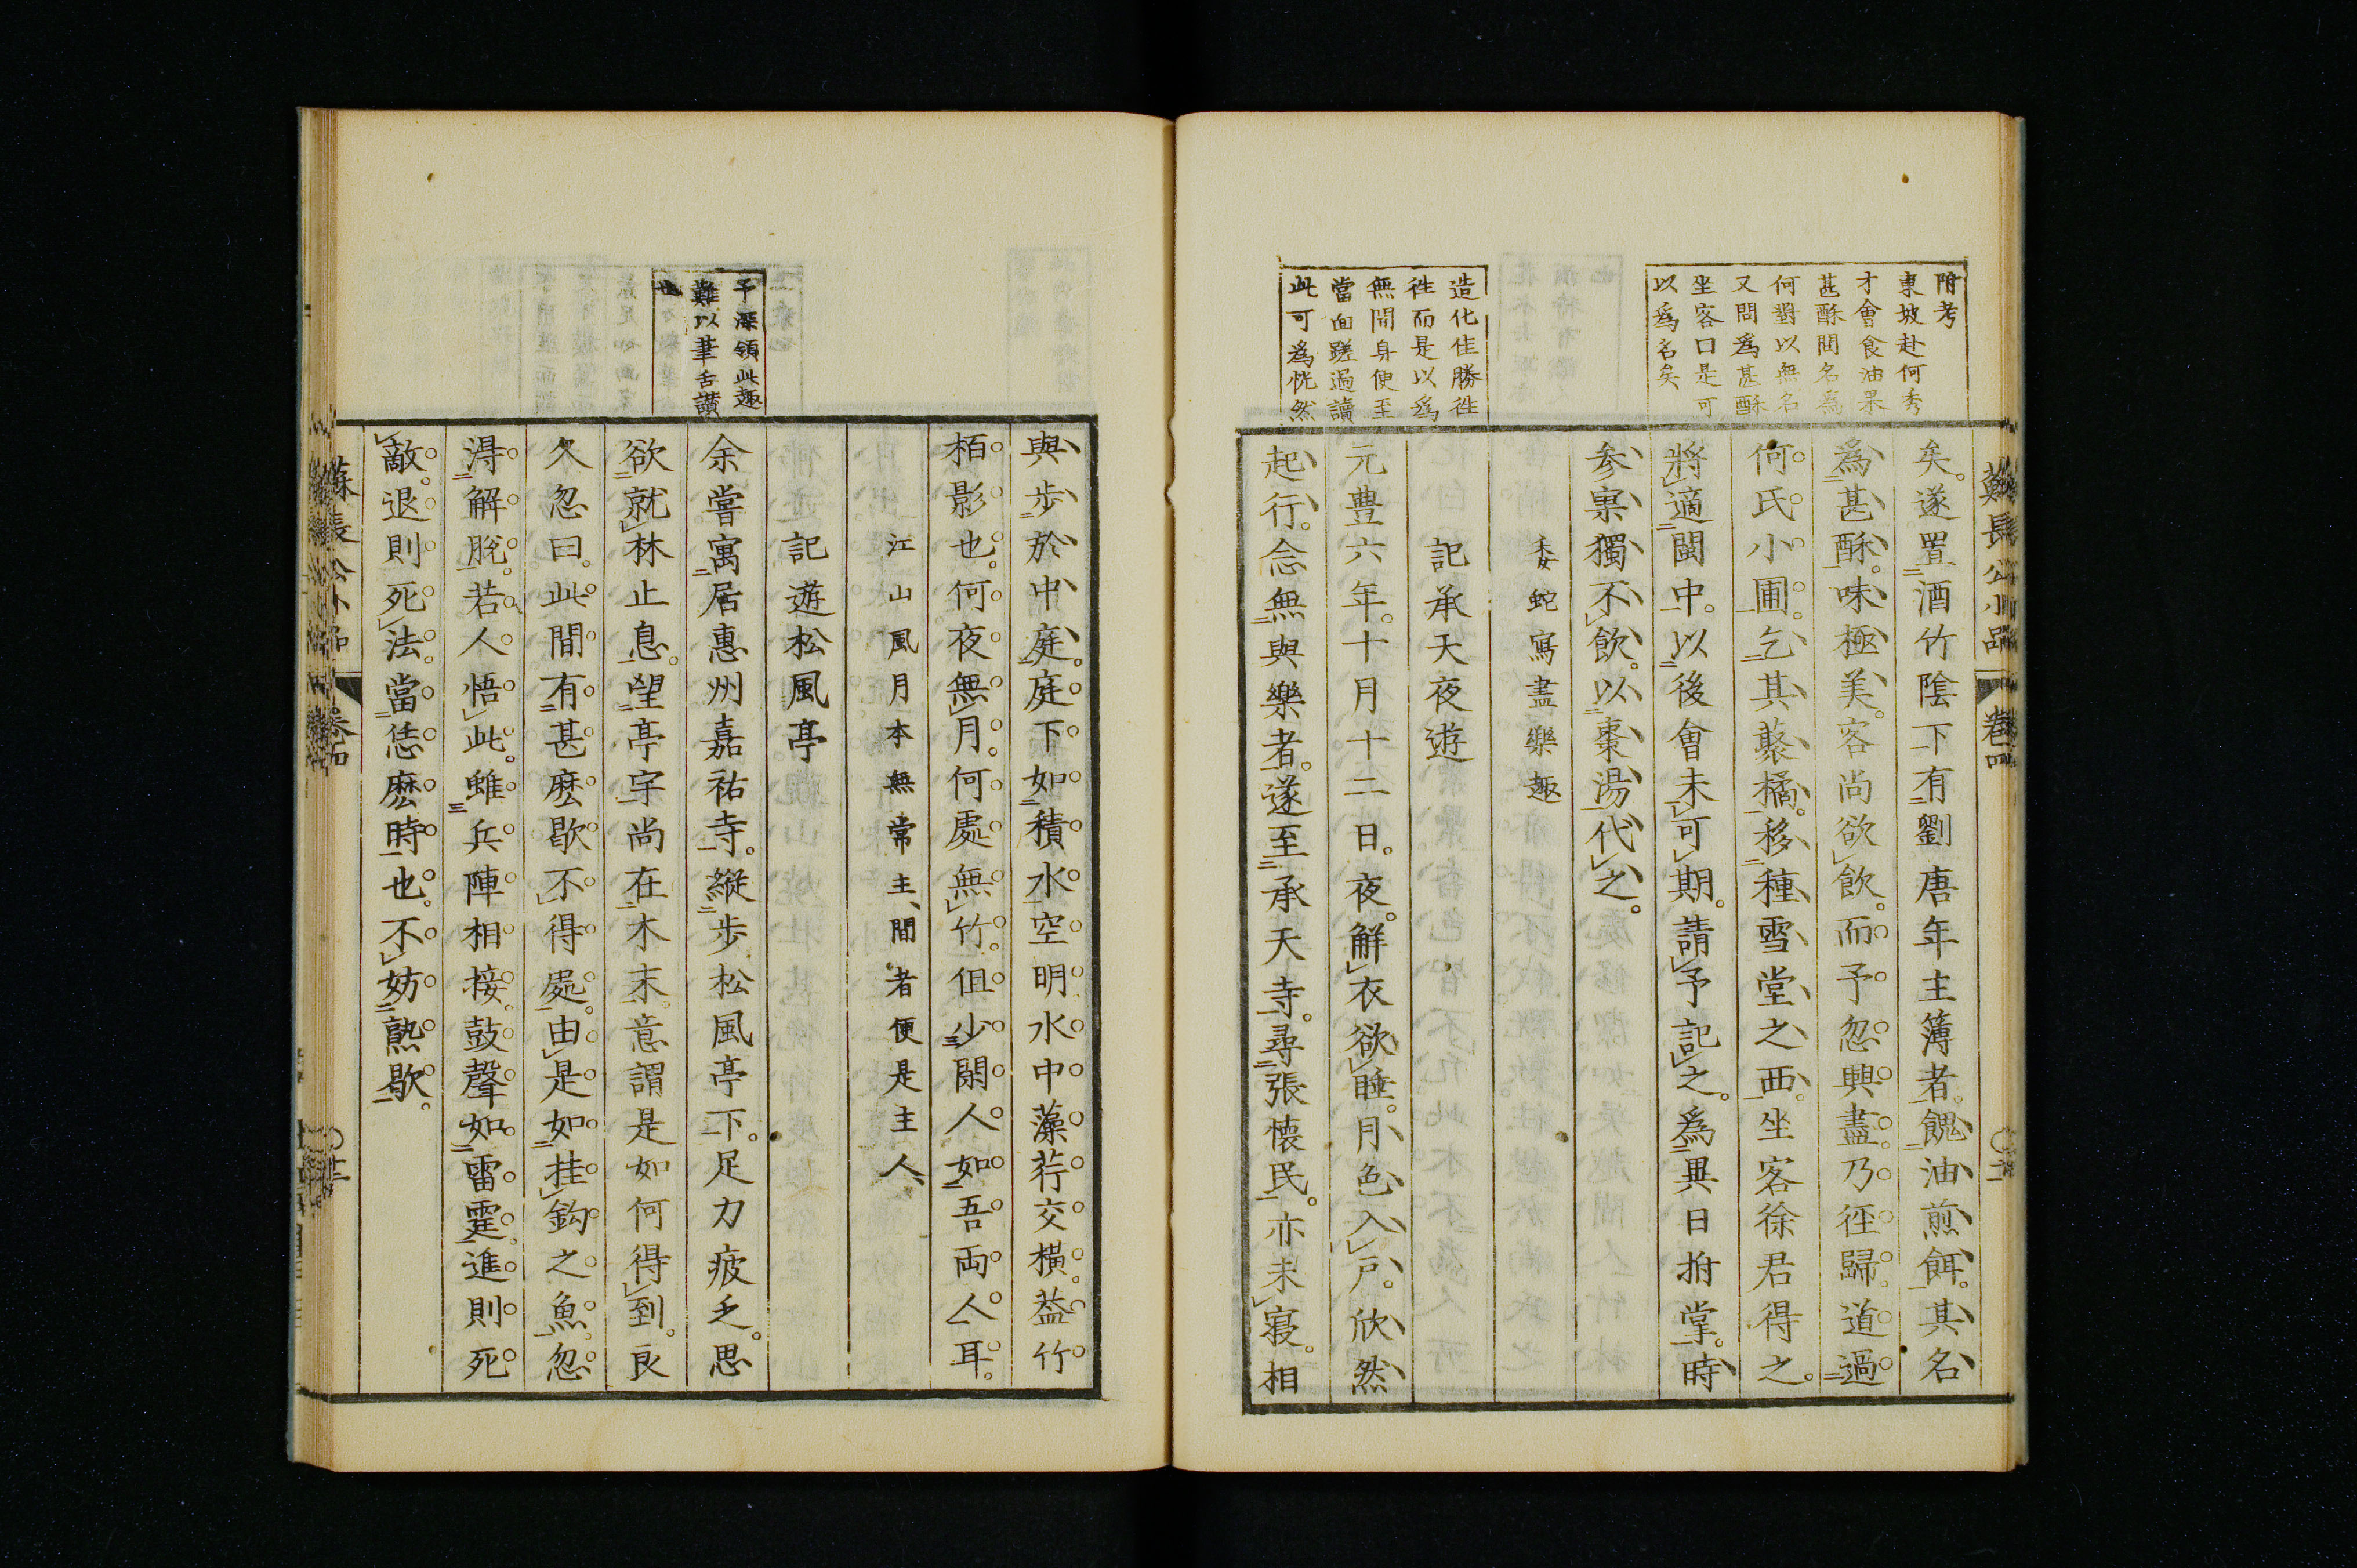 蘇長公小品
卷四
附考
東坡赴何秀
才會食油果
甚酥問名為
何對以無名
又問為甚酥
坐客曰是可
以為名矣
造化佳勝徃
徃而是以為
無閒身便至
當面蹉過讀
此可為恍然
矣遂置酒竹陰下有劉唐年主簿者餽油煎餌其名
為甚酥味極美客尚欲飲而予忽興盡乃徑歸道過
何氏小圃乞其藂橘移種雪堂之西坐客徐君得之
將適閩中以後會未可期請予記之為異日拊掌時
參寥獨不飲以棗湯代之
委蛇寫盡樂趣
記承天夜遊
元豊六年十月十二日夜解衣欲睡月色入戶欣然
起行念無與樂者遂至承天寺尋張懷民亦未寢相
予深領此趣
難以筆舌讃
也
與步於中庭庭下如積水空明水中藻荇交橫葢竹
栢影也何夜無月何處無竹但少閑人如吾両人耳
江山風月本無常主間者便是主人
記遊松風亭
余嘗寓居惠州嘉祐寺縱步松風亭下足力疲乏思
欲就林止息望亭宇尚在木末意謂是如何得到良
久忽曰此間有甚麽歇不得處由是如挂鈎之魚忽
淂解脫若人悟此雖兵陣相接鼓聲如雷霆進則死
敵退則死法當恁麽時也不妨熟歇
蘇長公小品
卷四